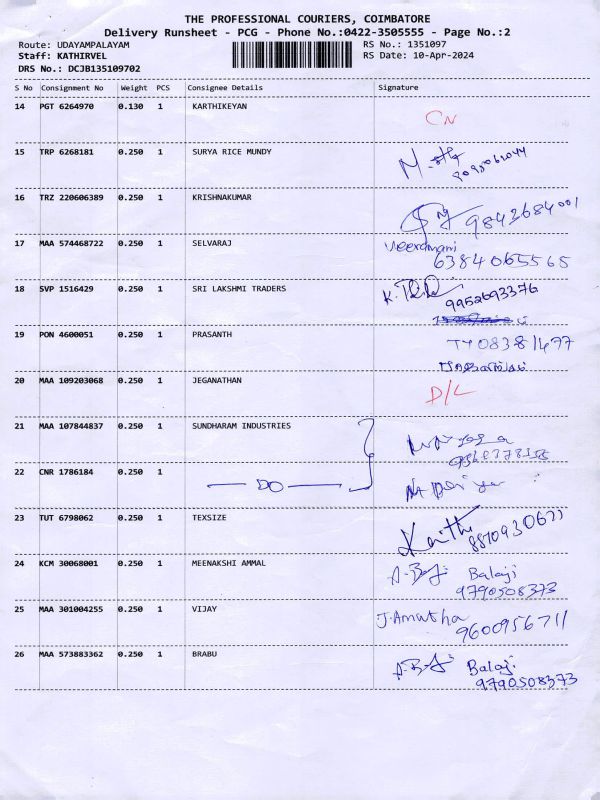 THE PROFESSIONAL COURIERS, COIMBATORE
Delivery Runsheet - PCG - Phone No.:0422-3505555 - Page No.:2
Route: UDAYAMPALAYAM
RS No.: 1351097
Staff: KATHIRVEL
RS Date: 10-Apr-2024
DRS No.: DCJB135109702
S No Consignment No Weight PCS Consignee Details Signature
14 PGT 6264970 0.130 1 KARTHIKEYAN
CN
15 TRP 6268181 0.250 1 SURYA RICE MUNDY
16 TRZ 220606389 0.250 1 KRISHNAKUMAR
9842684001
17 MAA 574468722 0.250 1 SELVARAJ
Veeramani
6384065565
18 SVP 1516429 0.250 1 SRI LAKSHMI TRADERS
9952693376
19 PON 4600051 0.250 1 PRASANTH
20 MAA 109203068 0.250 1 JEGANATHAN
D/L
21 MAA 107844837 0.250 1 SUNDHARAM INDUSTRIES
22 CNR 1786184 0.250 1
DO
23 TUT 6798062 0.250 1 TEXSIZE
24 KCM 30068001 0.250 1 MEENAKSHI AMMAL
Balaji
9790508373
25 MAA 301004255 0.250 1 VIJAY
J.Amutha
9600956711
26 MAA 573883362 0.250 1 BRABU
Balaji
9790508373